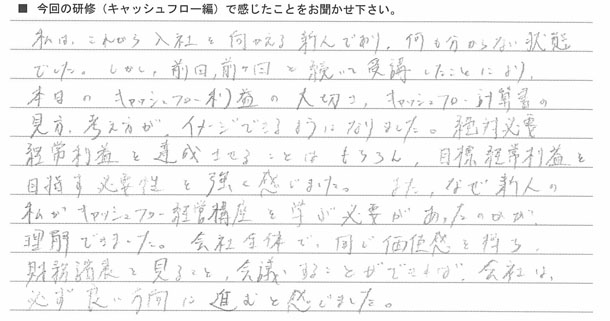 ■ 今回の研修（キャッシュフロー編）で感じたことをお聞かせ下さい。
私は、これから入社を向かえる新人であり、何も分からない状態
でした。しかし、前回、前々回と続いて受講したことにより、
本日のキャッシュフロー利益の大切さ、キャッシュフロー計算書の
見方、考え方が、イメージできるようになりました。絶対必要
経常利益を達成させることはもちろん、目標経常利益を
目指す必要性を強く感じました。また、なぜ新人の
私がキャッシュフロー経営講座を学ぶ必要があったのかが、
理解できました。会社全体で、同じ価値感を持ち、
財務諸表を見ること、会議することができれば、会社は、
必ず良い方向に進むと感じました。